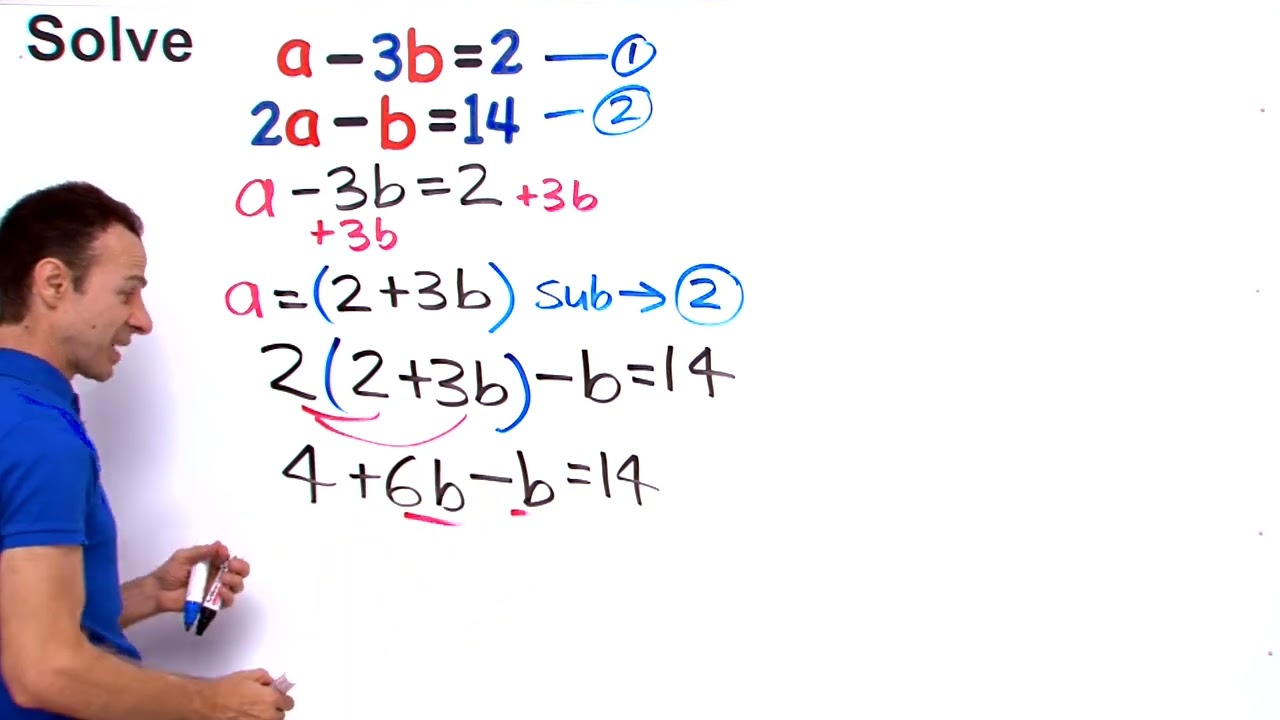 Solve
a-3b=2 — ①
2a-b=14 - ②
a-3b=2 +3b
+3b
a=(2+3b) sub→②
2(2+3b)-b=14
4+6b-b=14